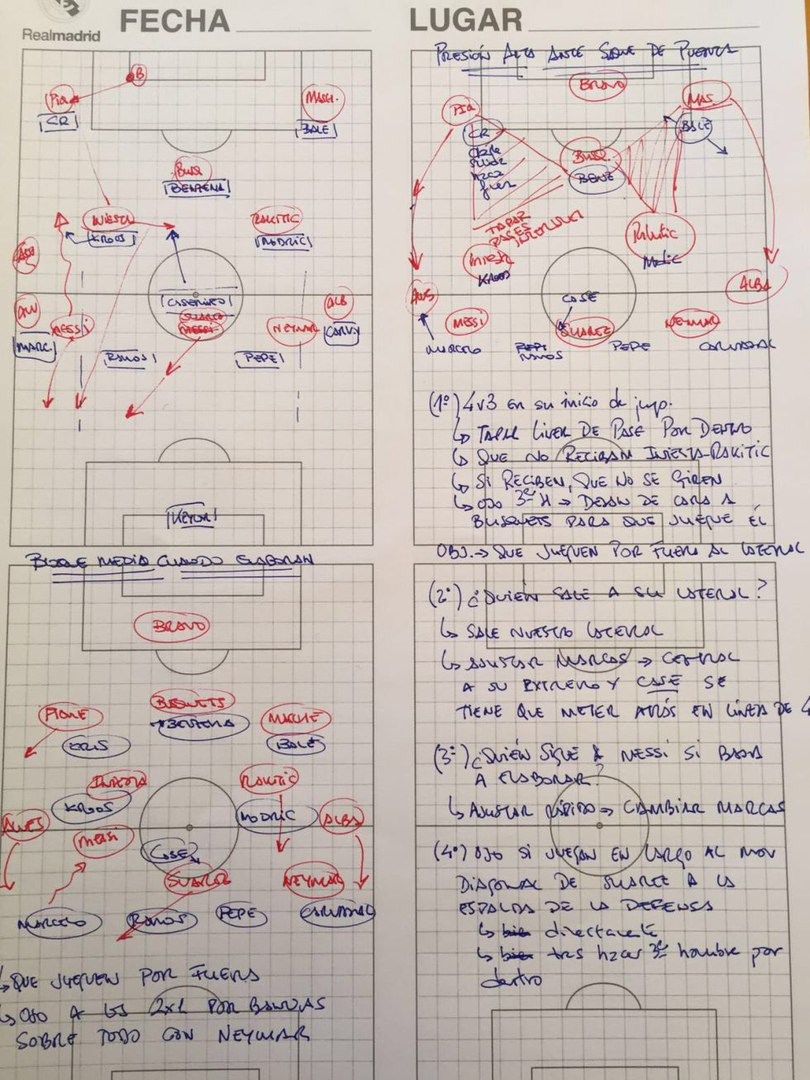 Realmadrid
FECHA
B
Piq
CR
MASCH.
BALE
Busq
BENZEMA
INIESTA
KROOS
RAKITIC
MODRIC
CASEMIRO
ALB
MESSI
SUAREZ
NEYMAR
CARVJ
MARC.
RAMOS
PEPE
KEYLOR
BLOQUE MEDIO CUANDO ELABORAN
BRAVO
PIQUE
BUSQUETS
BENZEMA
MASCHE
CRIS
BALE
INIESTA
KROOS
RAKITIC
MODRIC
ALVES
MESSI
CASE
ALBA
SUAREZ
NEYMAR
MARCELO
RAMOS
PEPE
CARVAJAL
↳ QUE JUEGUEN POR FUERA
↳ OJO A LOS 2x1 POR BANDAS
SOBRE TODO CON NEYMAR
LUGAR
PRESIÓN ALTA ANTE SAQUE DE PUERTA
BRAVO
PIQ
MAS
CR
BALE
BUSQ.
BENZ
TAPAR
PASES
INTERIORES
INIEST
KROOS
Rakitic
Modric
ALVS
ALBA
CASE
MESSI
SUAREZ
NEYMAR
MARCELO
RAMOS
PEPE
CARVAJAL
(1º) 4v3 en su inicio de juego.
↳ TAPAR LINEA DE PASE POR DENTRO
↳ QUE NO RECIBAN INIESTA-RAKITIC
↳ SI RECIBEN, QUE NO SE GIREN
↳ OJO 3er H → DEJAN DE CARA A
BUSQUETS PARA QUE JUEGUE ÉL
OBJ. → QUE JUEGUEN POR FUERA AL LATERAL
(2º) ¿QUIÉN SALE A SU LATERAL?
↳ SALE NUESTRO LATERAL
↳ AJUSTAR MARCAS → CENTRAL
A SU EXTREMO Y CASE SE
TIENE QUE METER ATRÁS EN LÍNEA DE 4
(3º) ¿QUIÉN SIGUE A MESSI SI BAJA
A ELABORAR?
↳ AJUSTAR RÁPIDO → CAMBIAR MARCAS
(4º) OJO SI JUEGAN EN LARGO AL MOV
DIAGONAL DE SUAREZ A LA
ESPALDA DE LA DEFENSA
↳ bien directamente
↳ bien tras hzar 3er hombre por
dentro